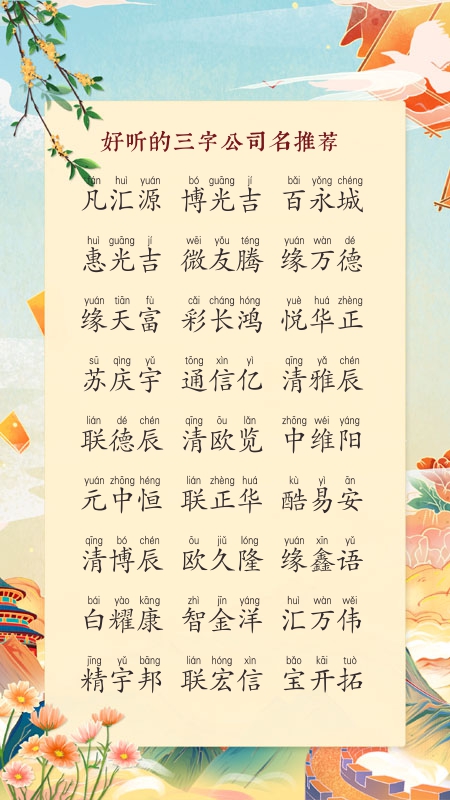 好听的三字公司名推荐
fán huì yuán bó guāng jí bǎi yǒng chéng
凡汇源 博光吉 百永城
huì guāng jí wēi yǒu téng yuán wàn dé
惠光吉 微友腾 缘万德
yuán tiān fù cǎi cháng hóng yuè huá zhèng
缘天富 彩长鸿 悦华正
sū qìng yǔ tōng xìn yì qīng yǎ chén
苏庆宇 通信亿 清雅辰
lián dé chén qīng ōu lǎn zhōng wéi yáng
联德辰 清欧览 中维阳
yuán zhōng héng lián zhèng huá kù yì ān
元中恒 联正华 酷易安
qīng bó chén ōu jiǔ lóng yuán xīn yǔ
清博辰 欧久隆 缘鑫语
bái yào kāng zhì jīn yáng huì wàn wěi
白耀康 智金洋 汇万伟
jīng yǔ bāng lián hóng xìn bǎo kāi tuò
精宇邦 联宏信 宝开拓